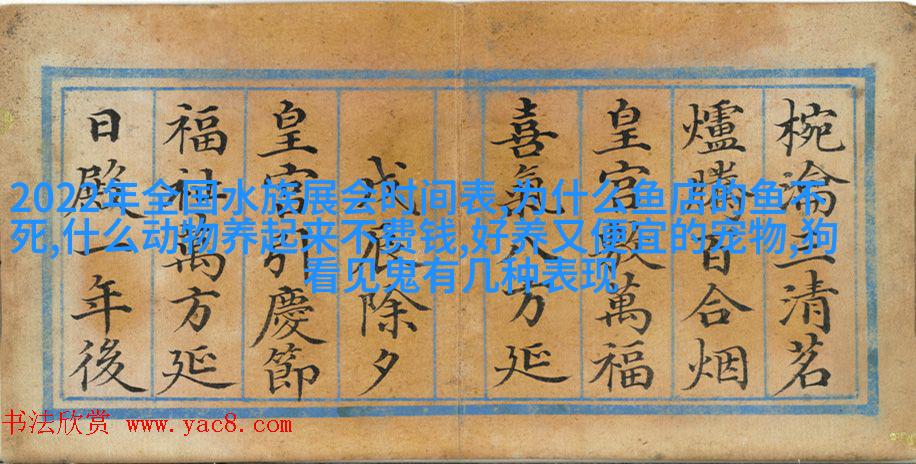 椀瀹三清茗
爐騰百合烟
皇宫敷萬福
喜氣八方延
戊辰除夕
皇宫引慶節
福祉萬方延
日殿一年後
2022年全国水族展会时间表,为什么鱼店的鱼不
死,什么动物养起来不费钱,好养又便宜的宠物,狗
看见鬼有几种表现
书法欣赏 www.yac8.com